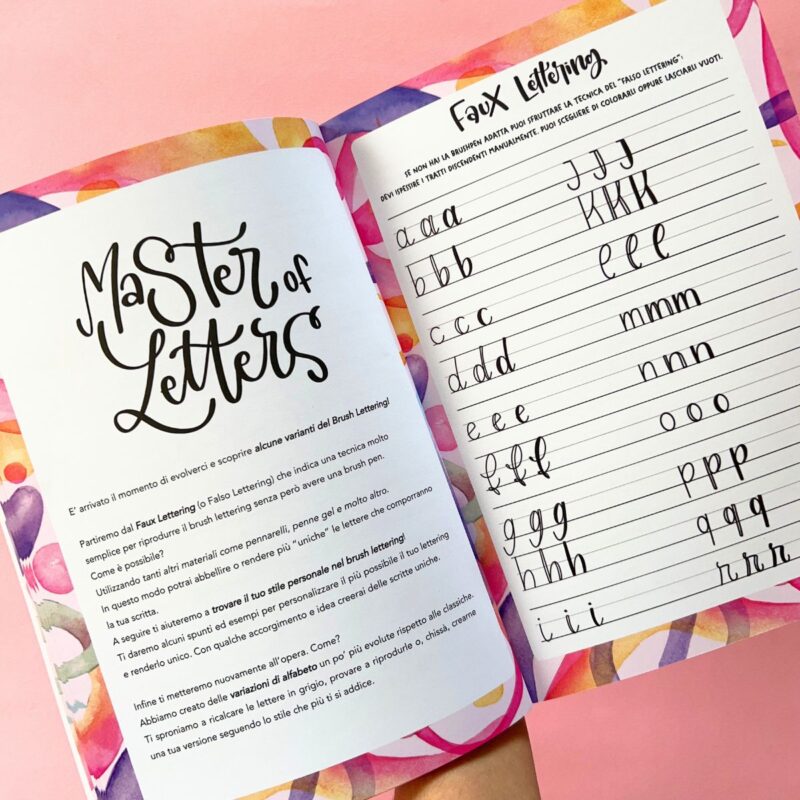 Master of
Letters
E' arrivato il momento di evolverci e scoprire alcune varianti del Brush Lettering!
Partiremo dal Faux Lettering (o Falso Lettering) che indica una tecnica molto
semplice per riprodurre il brush lettering senza però avere una brush pen.
Come è possibile?
Utilizzando tanti altri materiali come pennarelli, penne gel e molto altro.
In questo modo potrai abbellire o rendere più "uniche" le lettere che comporranno
la tua scritta.
A seguire ti aiuteremo a trovare il tuo stile personale nel brush lettering!
Ti daremo alcuni spunti ed esempi per personalizzare il più possibile il tuo lettering
e renderlo unico. Con qualche accorgimento e idea creerai delle scritte uniche.
Infine ti metteremo nuovamente all'opera. Come?
Abbiamo creato delle variazioni di alfabeto un po' più evolute rispetto alle classiche.
Ti sproniamo a ricalcare le lettere in grigio, provare a riprodurle o, chissà, crearne
una tua versione seguendo lo stile che più ti si addice.
Faux Lettering
SE NON HAI LA BRUSHPEN ADATTA PUOI SFRUTTARE LA TECNICA DEL "FALSO LETTERING":
DEVI ISPESSIRE I TRATTI DISCENDENTI MANUALMENTE. PUOI SCEGLIERE DI COLORARLI OPPURE LASCIARLI VUOTI.
a a a J J J
b b b K K K
c c c l l l
d d d m m m
e e e n n n
f f f o o o
g g g p p p
h h h q q q
i i i r r r